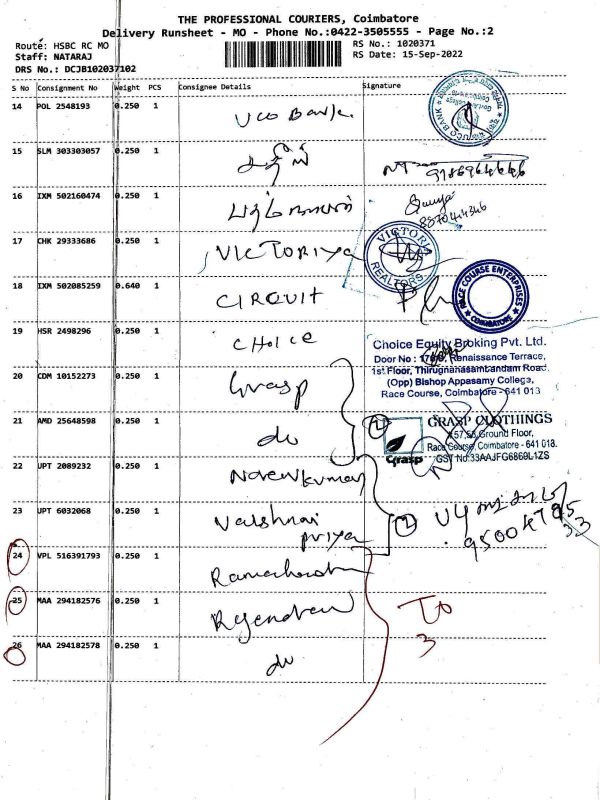 THE PROFESSIONAL COURIERS, Coimbatore
Delivery Runsheet - MO - Phone No.:0422-3505555 - Page No.:2
Route: HSBC RC MO RS No.: 1020371
Staff: NATARAJ RS Date: 15-Sep-2022
DRS No.: DCJB102037102
S No Consignment No Weight PCS Consignee Details Signature
14 POL 2548193 0.250 1 UCO Bank
15 SLM 303303057 0.250 1 சதீஸ்
16 IXM 502160474 0.250 1
17 CHK 29333686 0.250 1 VICTORIYA VICTORIA REALTORS
18 IXM 502085259 0.640 1 CIRCUIT RACE COURSE ENTERPRISES COIMBATORE
19 HSR 2498296 0.250 1 CHOICE
Choice Equity Broking Pvt. Ltd.
Renaissance Terrace,
1st Floor, Thirugnanasambandam Road,
(Opp) Bishop Appasamy College,
Race Course, Coimbatore - 641 013
20 CDM 10152273 0.250 1 Grasp
21 AMD 25648598 0.250 1 do 2
Grasp
GRASP CLOTHINGS
Ground Floor,
Race Course, Coimbatore - 641 018.
GST No:33AAJFG6869L1ZS
22 UPT 2089232 0.250 1 Naveenkumar
23 UPT 6032068 0.250 1 Vaishnavi
priya 2
24 VPL 516391793 0.250 1
25 MAA 294182576 0.250 1 Rajendran To
3
26 MAA 294182578 0.250 1 do